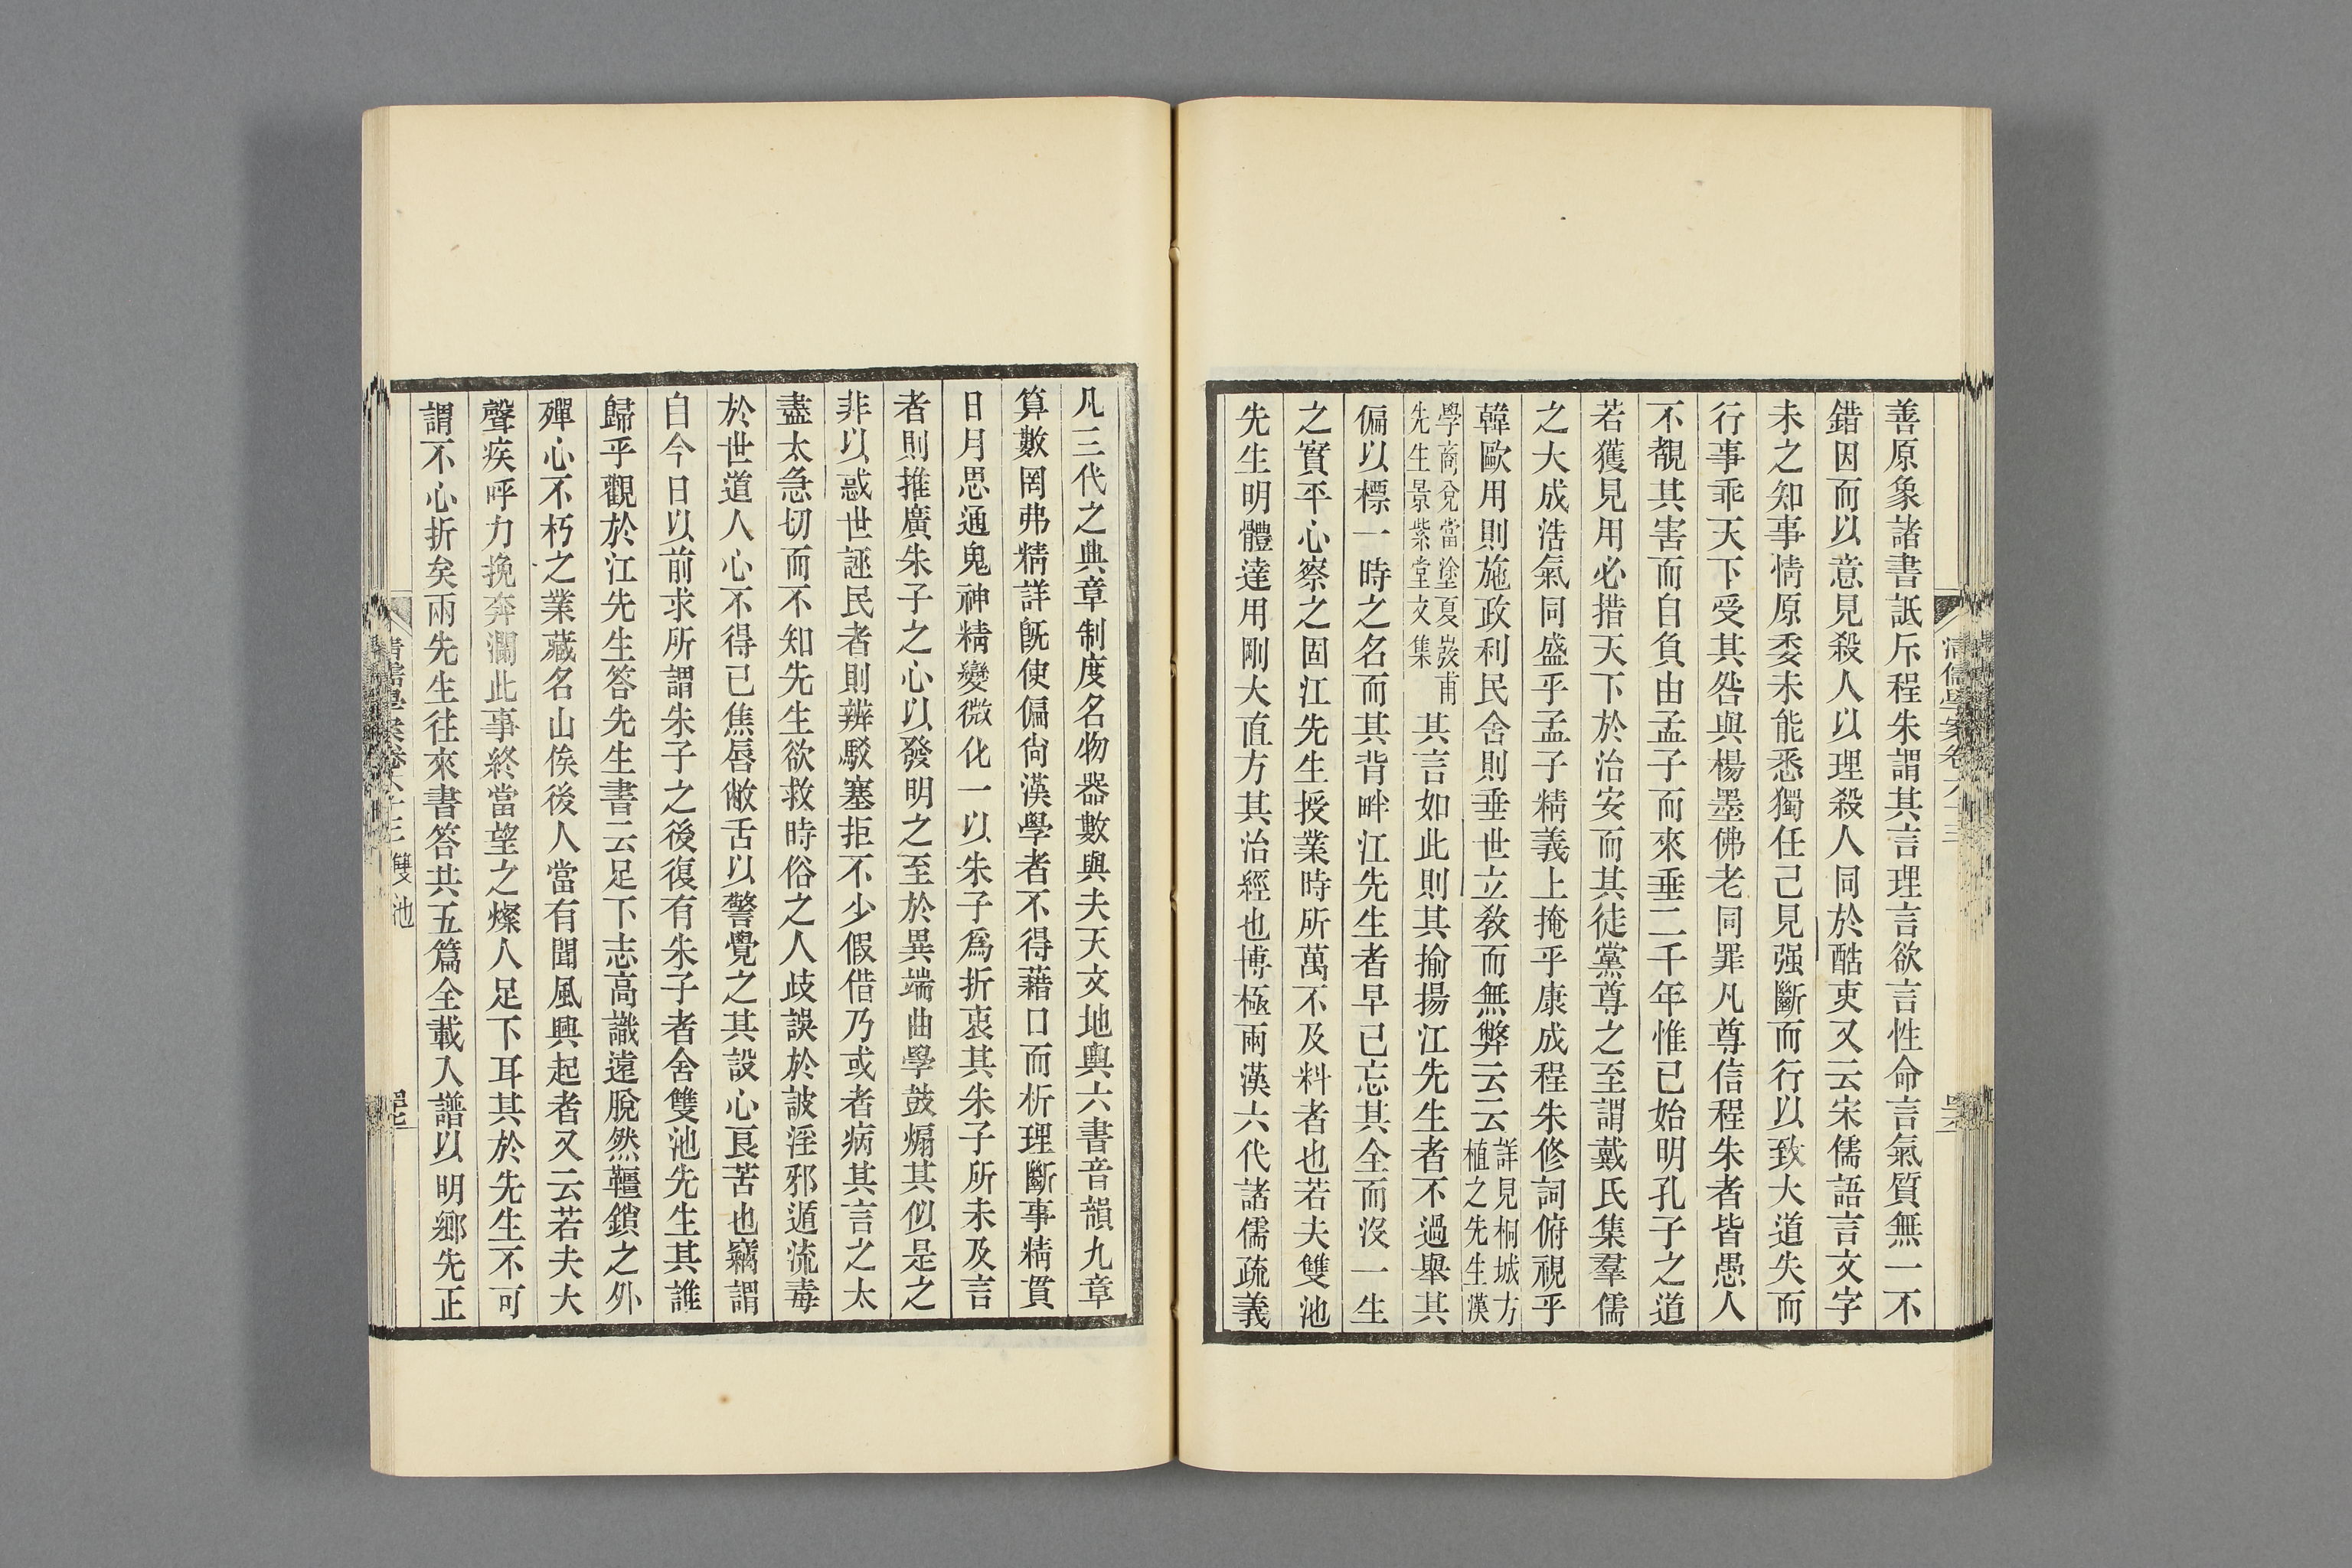 善原象諸書詆斥程朱謂其言理言欲言性命言氣質無一不
錯因而以意見殺人以理殺人同於酷吏又云宋儒語言文字
未之知事情原委未能悉獨任己見强斷而行以致大道失而
行事乖天下受其咎與楊墨佛老同罪凡尊信程朱者皆愚人
不覩其害而自負由孟子而來垂二千年惟已始明孔子之道
若獲見用必措天下於治安而其徒黨尊之至謂戴氏集羣儒
之大成浩氣同盛乎孟子精義上掩乎康成程朱修詞俯視乎
韓歐用則施政利民舍則垂世立敎而無弊云云詳見桐城方植之先生漢
學商兌當塗夏弢甫先生景紫堂文集其言如此則其揄揚江先生者不過舉其
偏以標一時之名而其背畔江先生者早已忘其全而沒一生
之實平心察之固江先生授業時所萬不及料者也若夫雙池
先生明體達用剛大直方其治經也博極兩漢六代諸儒疏義
凡三代之典章制度名物器數與夫天文地輿六書音韻九章
算數罔弗精詳旣使偏尙漢學者不得藉口而析理斷事精貫
日月思通鬼神精變微化一以朱子爲折衷其朱子所未及言
者則推廣朱子之心以發明之至於異端曲學鼓煽其似是之
非以惑世誣民者則辨駁塞拒不少假借乃或者病其言之太
盡太急切而不知先生欲救時俗之人歧誤於詖淫邪遁流毒
於世道人心不得已焦脣敝舌以警覺之其設心良苦也竊謂
自今日以前求所謂朱子之後復有朱子者舍雙池先生其誰
歸乎觀於江先生答先生書云足下志高識遠脫然韁鎖之外
殫心不朽之業藏名山俟後人當有聞風興起者又云若夫大
聲疾呼力挽奔瀾此事終當望之燦人足下耳其於先生不可
謂不心折矣兩先生往來書答共五篇全載入譜以明鄉先正
清儒學案卷六十三 雙池